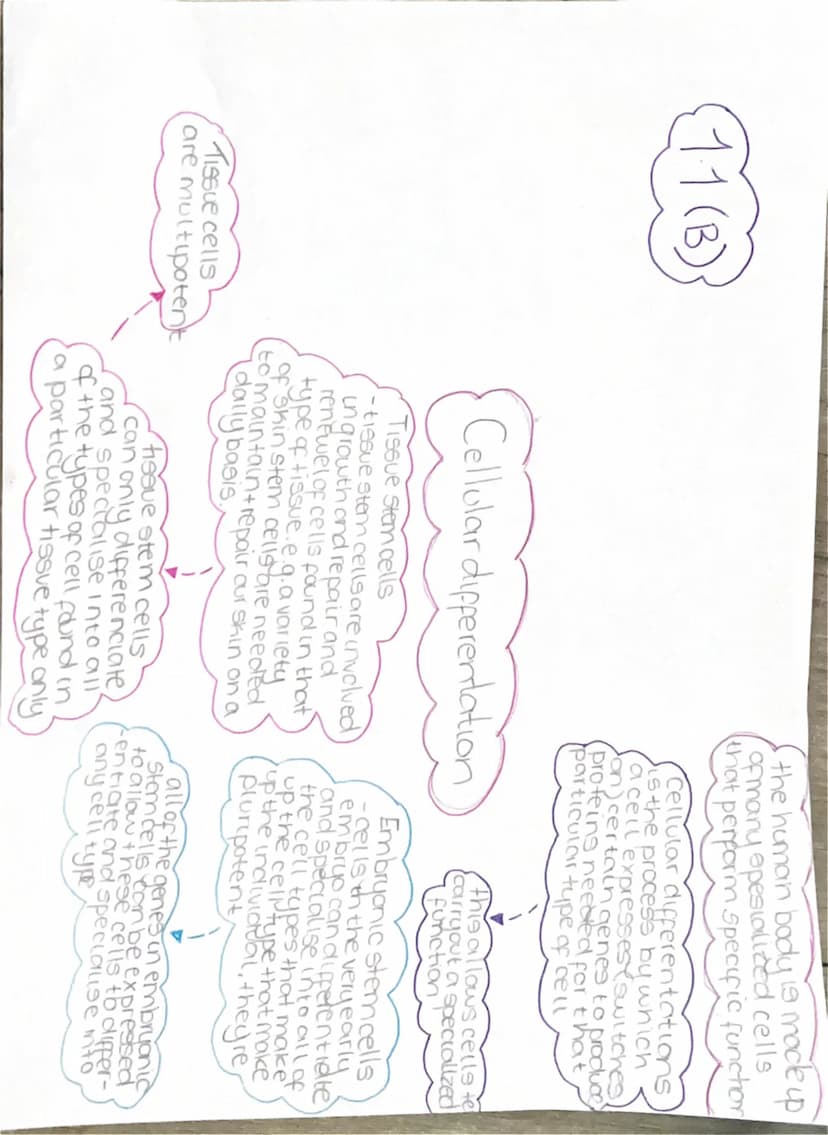 11(B)
the human body is made up
of many spesialized cells
that perform specific function
cellular differentations
is the process by which
a cell expresses (switches
on) certain genes to produce
proteins needed for that
particular type of cell
this allows cells to
carry out a specialized
function
Cellular differentation
Tissue stem cells
-tissue stem cells are involved
in growth and repair and
renewel of cells found in that
type of tissue. e.g. a variety
of skin stem cells are needed
to maintain + repair our skin on a
daily basis
tissue stem cells
can only differenciate
and specialise into all
of the types of cell found in
a particular tissue type only
Tissue cells
are multipotent
Embryonic stem cells
-cells in the very early
embryo can differentiate
and specialise into all of
the cell types that make
up the cell type that make
up the individual, they're
pluripotent
all of the genes in embryonic
stem cells can be expressed
to allow these cells to differ-
entiate and specialise into
any cell type